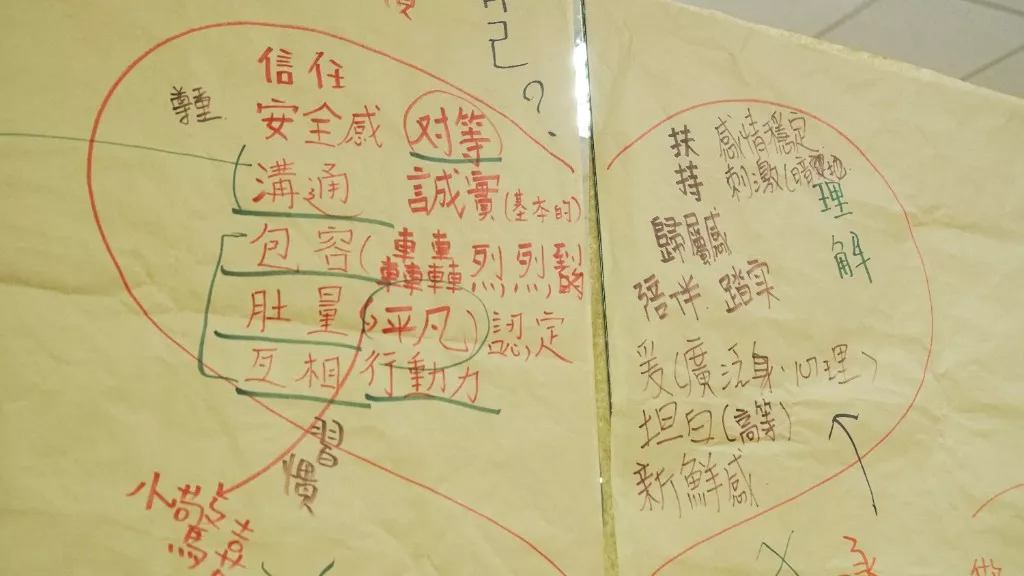 己
?
信任
安全感
对等
溝通
誠實(基本的)
包容(轟轟烈烈
肚量
(平凡)
認定
互相
行動力
習慣
小驚喜
扶持
感情穩定
刺激
理解
歸屬感
陪伴 踏实
爱(廣泛身、心理)
坦白(高等)
新鮮感